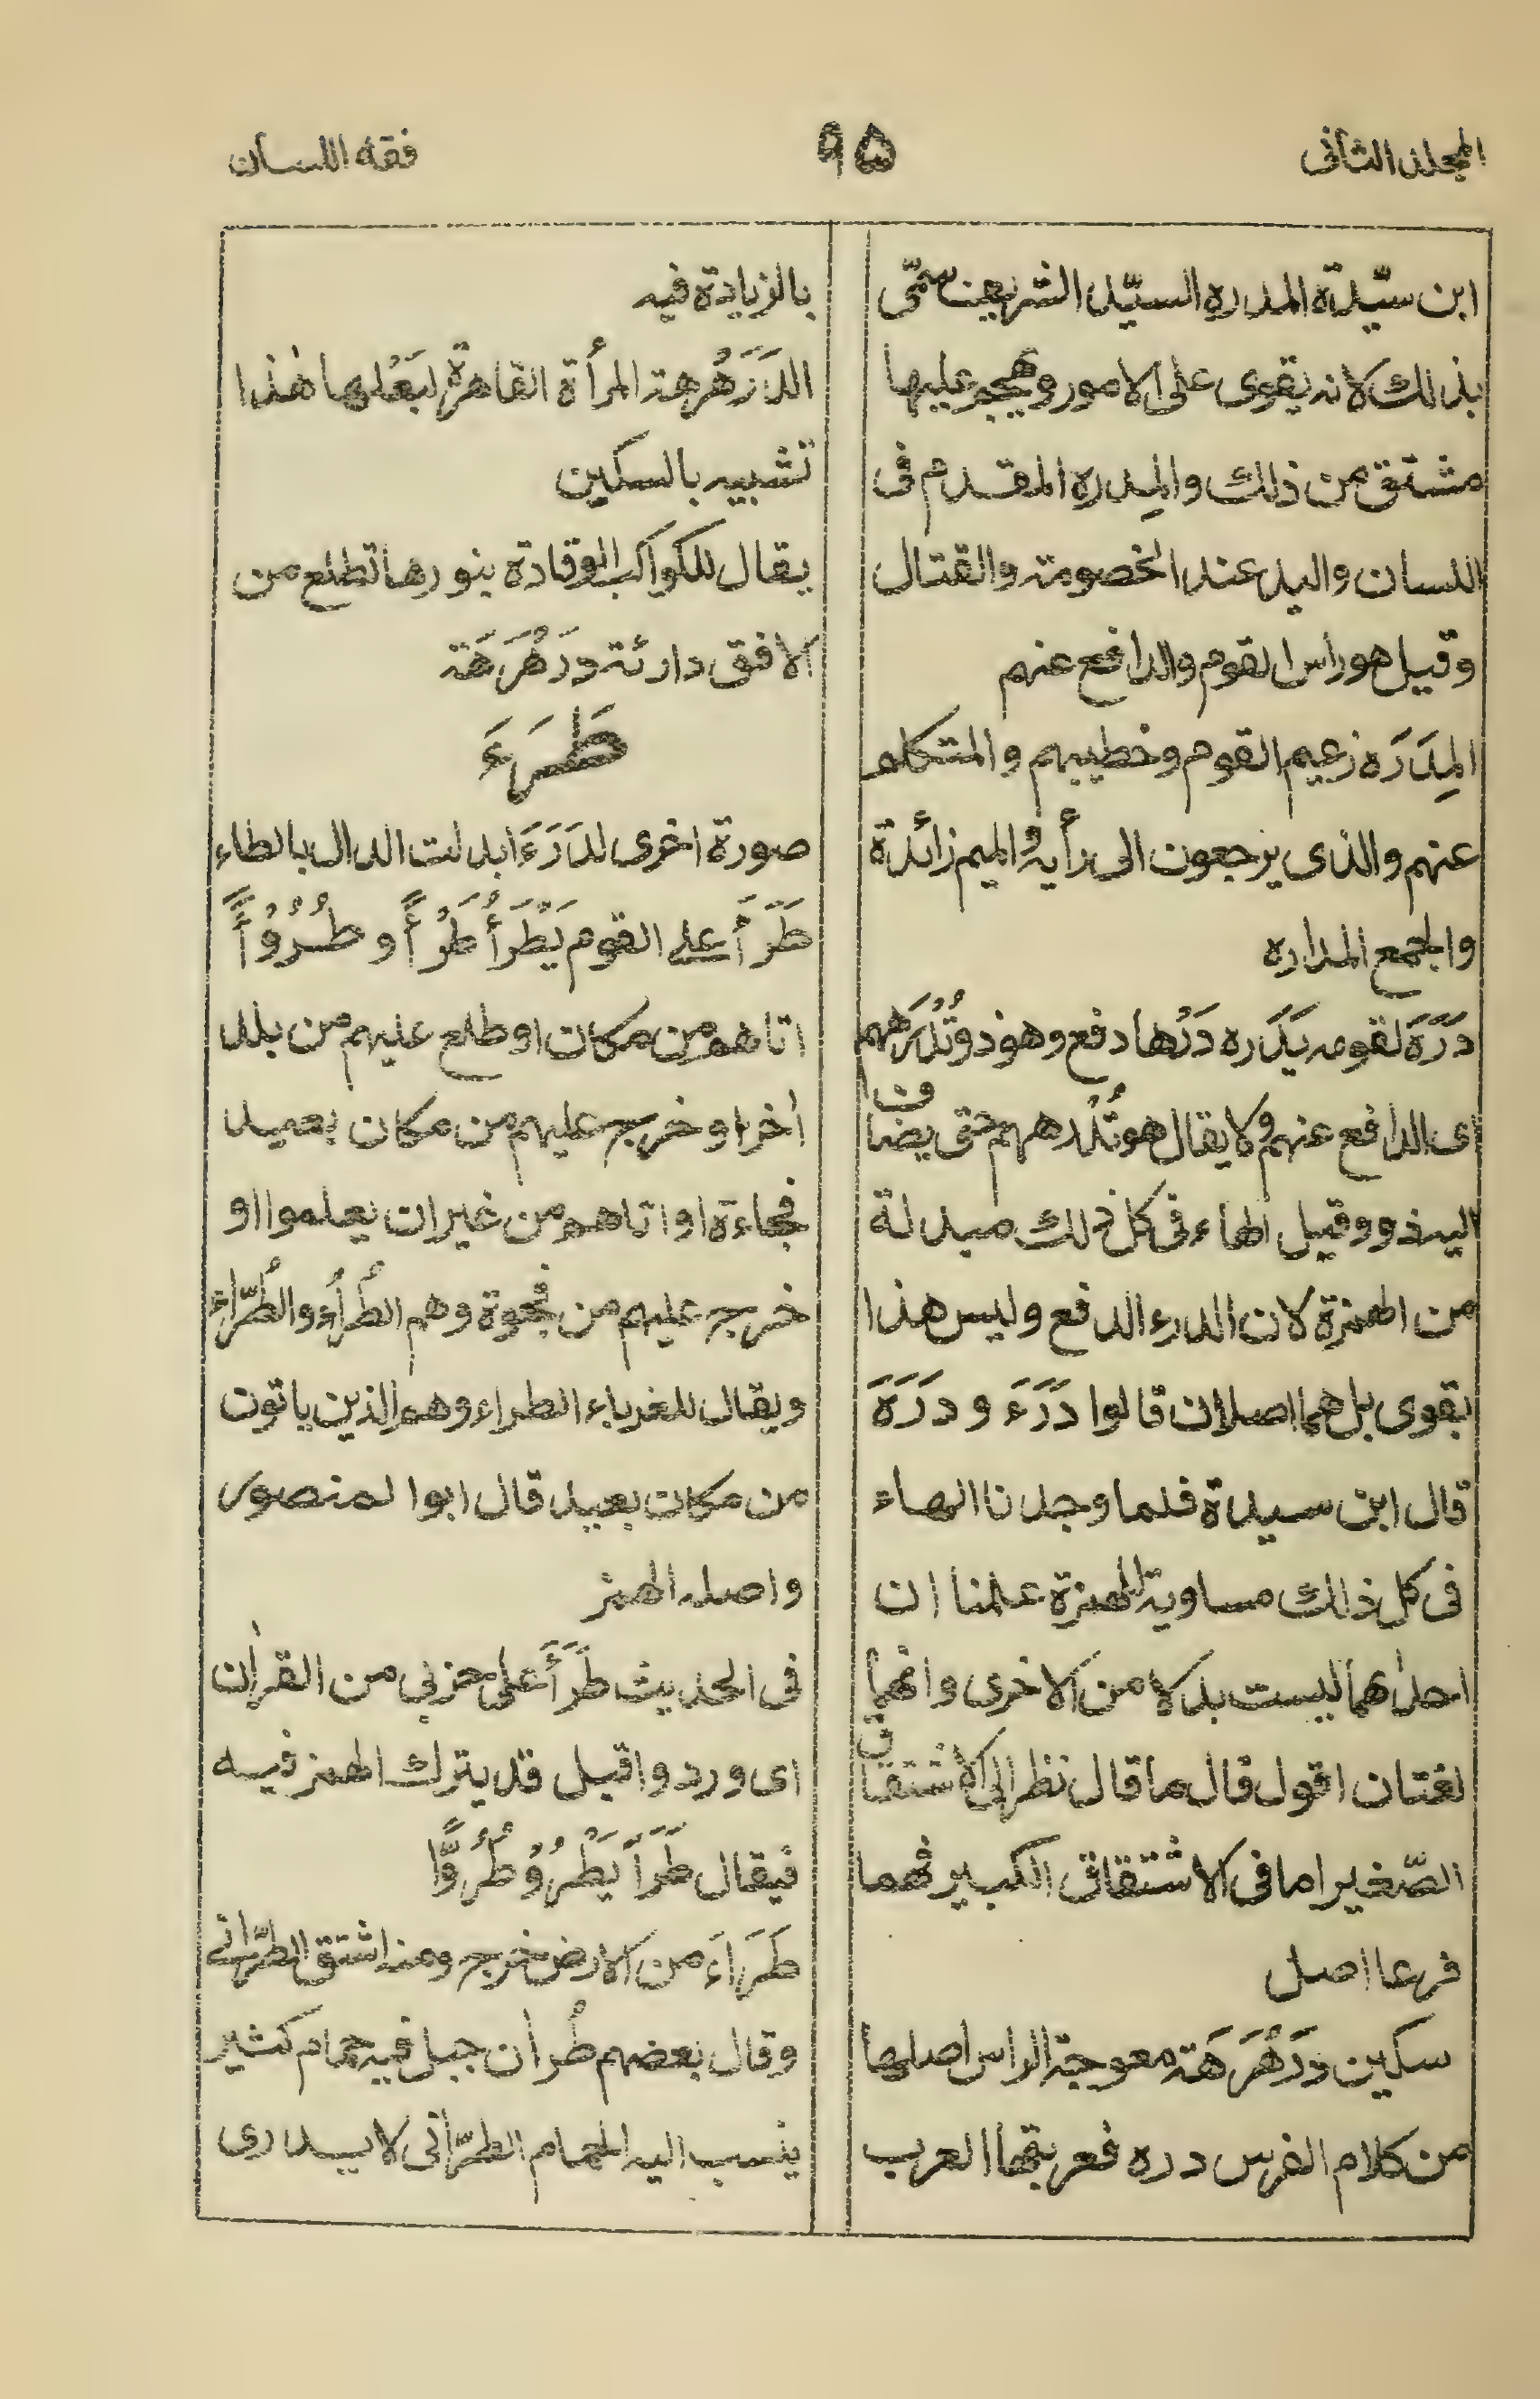 المجلد الثانى
۹۵
فقه اللسان
ابن سيّدة المدره السيّد الشريف سمّى
بذالك لانه يقوى على الامور ويهجم عليها
مشتق من ذلك والمِدره المقدم فى
اللسان واليد عند الخصومة والقتال
وقيل هو راس القوم والدافع عنهم
المِدَرَه زعيم القوم وخطيبهم والمتكلم
عنهم والذى يرجعون الى رأيه والميم زائدة
والجمع المداره
دَرَّهَ لقومه يَدَره دَرْها دفع وهو ذو تُدْرَههم
اى الدافع عنهم ولا يقال هو تُدْرههم حتى يضاف
اليه ذو وقيل الهاء فى كل ذلك مبدلة
من الهمزة لان الدرء الدفع وليس هذا
بقوى بل هما اصلان قالوا دَرَءَ و دَرَهَ
قال ابن سيدة فلما وجدنا الهاء
فى كل ذالك مساوية للهمزة علمنا ان
احداهما ليست بدلا من الاخرى وانهما
لغتان اقول قال ما قال نظر الى الاشتقاق
الصّغير اما فى الاشتقاق الكبير فهما
فرعا اصل
سكين دَرَهْرَهَة معوجة الراس اصلها
من كلام الفرس دره فعربتها العرب
بالزيادة فيه
الدَرَهْرهة المرأة القاهرة لبَعْلها هذا
تشبيه بالسكين
يقال للكواكب الوقادة بنورها تطلع من
الافق دارئة دَرَهْرَهَة
طَرَءَ
صورة اخرى لدَرَءَ ابدلت الدال بالطاء
طَرَأَ على القوم يَطْرَأُ طَرْأً و طُرُوْأً
اتاهم من مكان او طلع عليهم من بلد
اٰخر او خرج عليهم من مكان بعيد
فجاءة او اتاهم من غير ان يعلموا او
خرج عليهم من فجوة وهم الطُرأُ والطُرّاء
ويقال للغرباء الطراء وهم الذين ياتون
من مكان بعيد قال ابوالمنصور
واصله الهمز
فى الحديث طَرَأَ على حزبي من القراٰن
اى ورد واقبل قد يترك الهمز فيه
فيقال طَرَاَ يَطْرُوُ طُرُوًّا
طَرَاَءَ من الارض خرج ومنه اشتق الطرّانے
وقال بعضهم طُراٰن جبل فيه حمام كثير
ينسب اليه الحمام الطرّانى لا يدرى